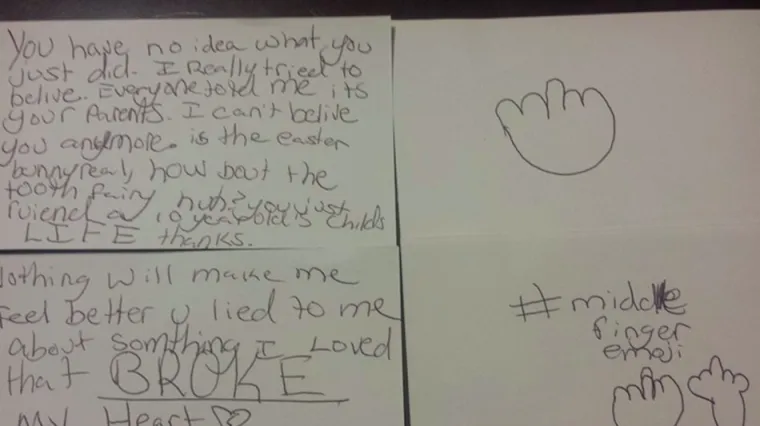 You have no idea what you
just did. I Really tried to
belive. Everyone toteld me its
your Parents. I can't belive
you anymore. is the easter
bunny real, how bout the
tooth fairy huh? you just
ruiend a 10 year old's childs
LIFE thanks.
Nothing will make me
feel better u lied to me
about somthing I Loved
that BROKE
my Heart
#middle
finger
emoji